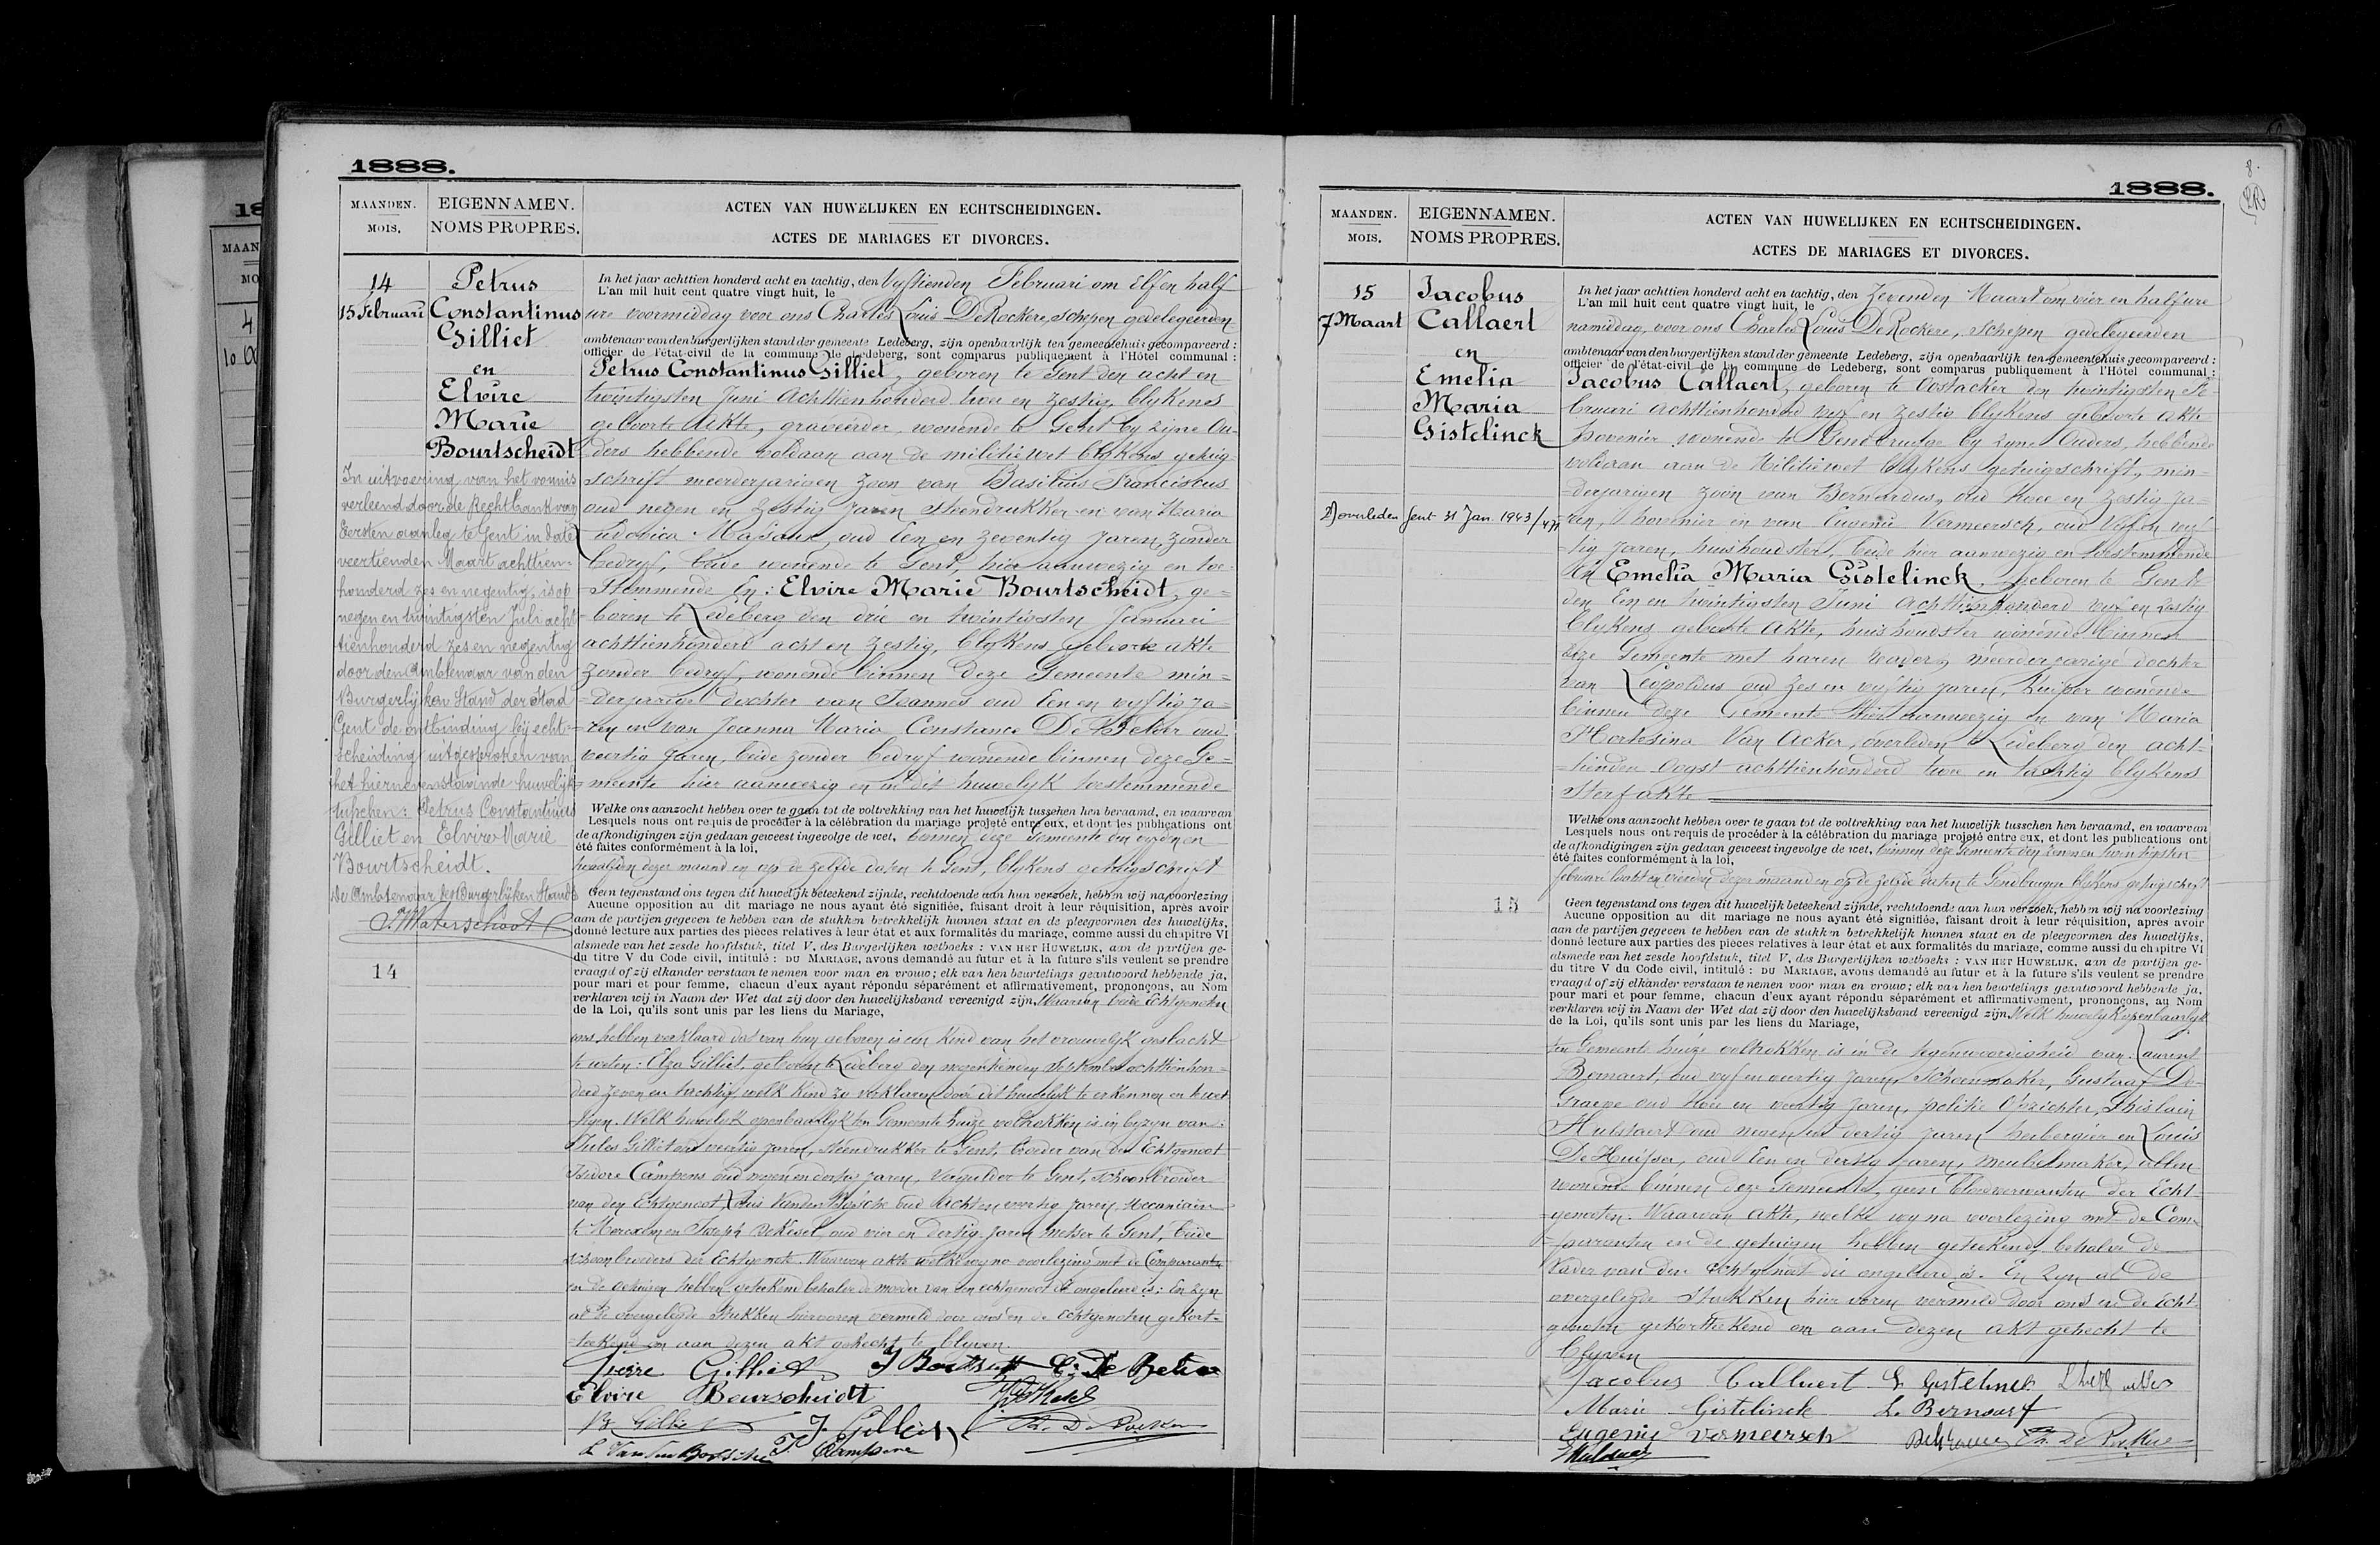 1888.
MAANDEN.
MOIS.
EIGENNAMEN.
NOMS PROPRES.
ACTEN VAN HUWELIJKEN EN ECHTSCHEIDINGEN.
ACTES DE MARIAGES ET DIVORCES.
14
15 Februari
Petrus
Constantinus
Gilliet
en
Elvire
Marie
Bourtscheidt
In uitvoering van het vonnis
verleend door de Rechtbank van
Eersten aanleg te Gent in date
veertienden Maart achttien-
honderd zes en negentig, is op
negen en twintigsten Juli acht-
tienhonderd zes en negentig
door den Ambtenaar van den
Burgerlijken Stand der Stad
Gent de ontbinding bij echt-
scheiding uitgesproken van
het hiernevenstaande huwelijk
tusschen: Petrus Constantinus
Gilliet en Elvire Marie
Bourtscheidt.
De Ambtenaar des Burgerlijken Stands
14
In het jaar achttien honderd acht en tachtig, den vyftienden Februari om Elf en half
L'an mil huit cent quatre vingt huit, le
ure voormiddag voor ons Charles Louis DeRockere, schepen gedelegeerden
ambtenaar van den burgerlijken stand der gemeente Ledeberg, zijn openbaarlijk ten gemeentehuis gecompareerd:
officier de l'état-civil de la commune de Ledeberg, sont comparus publiquement à l'Hôtel communal:
Petrus Constantinus Gilliet, geboren te Gent den acht en
twintigsten Juni Achttienhonderd twee en zestig, blykens
geboorte Akte, graveerder, wonende te Gent by zyne Ou-
ders hebbende voldaan aan de militiewet blykens getuig-
schrift meerderjarigen zoon van Basilius Franciscus
oud negen en zestig jaren steendrukker en van Maria
Ludovica oud Een en zeventig jaren, zonder
bedryf, beide wonende te Gent, hier aanwezig en toe-
stemmende En: Elvire Marie Bourtscheidt, ge-
boren te Ledeberg den drie en twintigsten Januari
achttienhonderd acht en zestig, blykens geboorte akte
zonder bedryf, wonende binnen deze Gemeente min-
derjarige dochter van Joannes oud Een en vyftig ja-
ren en van Joanna Maria Constance De Belder oud
veertig jaren, beide zonder bedryf wonende binnen deze Ge-
meente hier aanwezig en in dit huwelyk toestemmende
Welke ons aanzocht hebben over te gaan tot de voltrekking van het huwelijk tusschen hen beraamd, en waarvan
Lesquels nous ont requis de procéder à la célébration du mariage projeté entre eux, et dont les publications ont
de afkondigingen zijn gedaan geweest ingevolge de wet, binnen deze Gemeente den vyfden en
été faites conformément à la loi,
twaalfden dezer maand en op de zelfde daten te Gent, blykens getuigschrift
Geen tegenstand ons tegen dit huwelijk beteekend zijnde, rechtdoende aan hun verzoek, hebben wij na voorlezing
Aucune opposition au dit mariage ne nous ayant été signifiée, faisant droit à leur réquisition, après avoir
aan de partijen gegeven te hebben van de stukken betrekkelijk hunnen staat en de pleegvormen des huwelijks,
donné lecture aux parties des pièces relatives à leur état et aux formalités du mariage, comme aussi du chapitre VI
alsmede van het zesde hoofdstuk, titel V, des Burgerlijken wetboeks: VAN HET HUWELIJK, aan de partijen ge-
du titre V du Code civil, intitulé: DU MARIAGE, avons demandé au futur et à la future s'ils veulent se prendre
vraagd of zij elkander verstaan te nemen voor man en vrouw; elk van hen beurtelings geantwoord hebbende ja,
pour mari et pour femme, chacun d'eux ayant répondu séparément et affirmativement, prononçons, au Nom
verklaren wij in Naam der Wet dat zij door den huwelijksband vereenigd zijn. Waarna beide Echtgenoten
de la Loi, qu'ils sont unis par les liens du Mariage,
ons hebben verklaard dat van hun geboren is een kind van het vrouwelyk geslacht
te weten: Elza Gilliet, geboren te Ledeberg den negentienden achttienhon-
derd zeven en tachtig welk kind zy verklaren door dit huwelyk te erkennen en te wet-
tigen. Welk huwelyk openbaarlyk ten Gemeente huize voltrokken is in byzyn van:
Jules Gilliet oud veertig jaren, steendrukker te Gent, broeder van den Echtgenoot
Isidore Campens oud negen en dertig jaren, vergulder te Gent, schoonbroeder
van den Echtgenoot, Louis Vanden Bossche oud acht en veertig jaren, mecanicien
te en Joseph DeKesel, oud vier en dertig jaren metser te Gent, beide
schoonbroeders der Echtgenote. Waarvan akte welke wy na voorlezing met de Comparanten
en de getuigen hebben geteekend behalve de moeder van den echtgenoot die ongeleerd is: En zyn
al de overgelegde stukken hiervoren vermeld door ons en de Echtgenoten gekort-
teekend om aan dezen akt gehecht te blyven.
Pierre Gilliet C. De Belder
Elvire Bourscheidt
B. Gilliet J. Gilliet Ch. De Rockere
L. Vanden Bossche Campens
1888.
8.
MAANDEN.
MOIS.
EIGENNAMEN.
NOMS PROPRES.
ACTEN VAN HUWELIJKEN EN ECHTSCHEIDINGEN.
ACTES DE MARIAGES ET DIVORCES.
15
7 Maart
Jacobus
Callaert
en
Emelia
Maria
Gistelinck
overleden Gent 31 Jan. 1943/
15
In het jaar achttien honderd acht en tachtig, den Zevenden Maart om vier en half ure
L'an mil huit cent quatre vingt huit, le
namiddag, voor ons Charles Louis DeRockere, schepen gedelegeerden
ambtenaar van den burgerlijken stand der gemeente Ledeberg, zijn openbaarlijk ten gemeentehuis gecompareerd:
officier de l'état-civil de la commune de Ledeberg, sont comparus publiquement à l'Hôtel communal:
Jacobus Callaert, geboren te Oostacker den twintigsten Fe-
bruari achttienhonderd vyf en zestig blykens geboorte akte
hovenier wonende te Gendbrugge by zyne Ouders, hebbende
voldaan aan de Militiewet blykens getuigschrift, min-
derjarigen zoon van Bernardus, oud twee en zestig ja-
ren, hovenier en van Eugenie Vermeersch, oud vyf en vyf-
tig jaren, huishoudster, beide hier aanwezig en toestemmende
En Emelia Maria Gistelinck, geboren te Gent
den Een en twintigsten Juni achttienhonderd vyf en zestig
blykens geboorte akte, huishoudster wonende binnen
deze Gemeente met haren vader, meerderjarige dochter
van Leopoldus oud zes en vyftig jaren, Kuiper wonende
binnen deze Gemeente hier aanwezig en van Maria
Hortesina Van Acker, overleden te Ledeberg den acht-
tienden Oogst achttienhonderd twee en tachtig blykens
sterfakte
Welke ons aanzocht hebben over te gaan tot de voltrekking van het huwelijk tusschen hen beraamd, en waarvan
Lesquels nous ont requis de procéder à la célébration du mariage projeté entre eux, et dont les publications ont
de afkondigingen zijn gedaan geweest ingevolge de wet, binnen deze Gemeente den zes en twintigsten
été faites conformément à la loi,
februari laatst en vierden dezer maand en op de zelfde daten te Gendbrugge blykens getuigschrift
Geen tegenstand ons tegen dit huwelijk beteekend zijnde, rechtdoende aan hun verzoek, hebben wij na voorlezing
Aucune opposition au dit mariage ne nous ayant été signifiée, faisant droit à leur réquisition, après avoir
aan de partijen gegeven te hebben van de stukken betrekkelijk hunnen staat en de pleegvormen des huwelijks,
donné lecture aux parties des pièces relatives à leur état et aux formalités du mariage, comme aussi du chapitre VI
alsmede van het zesde hoofdstuk, titel V, des Burgerlijken wetboeks: VAN HET HUWELIJK, aan de partijen ge-
du titre V du Code civil, intitulé: DU MARIAGE, avons demandé au futur et à la future s'ils veulent se prendre
vraagd of zij elkander verstaan te nemen voor man en vrouw; elk van hen beurtelings geantwoord hebbende ja,
pour mari et pour femme, chacun d'eux ayant répondu séparément et affirmativement, prononçons, au Nom
verklaren wij in Naam der Wet dat zij door den huwelijksband vereenigd zijn. Welk huwelyk openbaarlyk
de la Loi, qu'ils sont unis par les liens du Mariage,
ten Gemeente huize voltrokken is in de tegenwoordigheid van Laurent
Bernaert, oud vyf en veertig jaren, Schoenmaker, Gustaaf De
Graeve oud twee en veertig jaren, politie Opzichter, Ghislain
Hulstaert oud negen en dertig jaren herbergier en Louis
De Huisser, oud Een en dertig jaren, meubelmaker, allen
wonende binnen deze Gemeente, geen bloedverwanten der Echt-
genoten. Waarvan akte, welke wy na voorlezing met de Com-
paranten en de getuigen hebben geteekend, behalve de
Vader van den Echtgenoot die ongeleerd is. En zyn al de
overgelegde stukken hier voren vermeld door ons en de Echt-
genoten gekortteekend om aan dezen akt gehecht te
blyven
Jacobus Callaert L Gistelinck
Marie Gistelinck L. Bernaert
Eugenie Vermeersch DeGraeve Ch. De Rockere